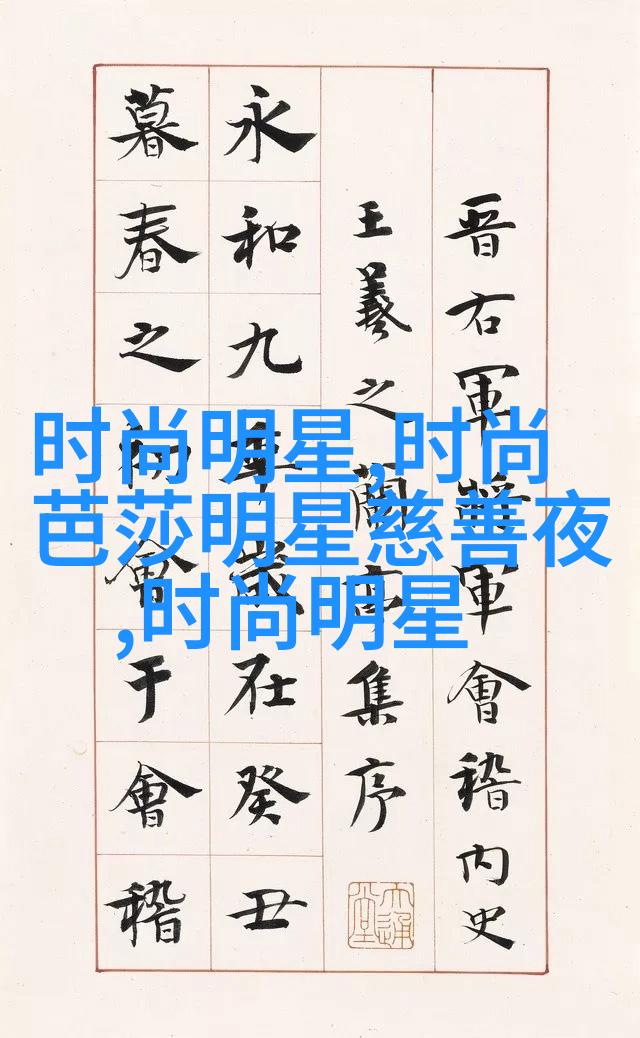 晋右軍將軍會稽内史
王羲之蘭亭集序
永和九年歲在癸丑
暮春之初會于會稽
时尚明星,时尚
芭莎明星慈善夜
,时尚明星